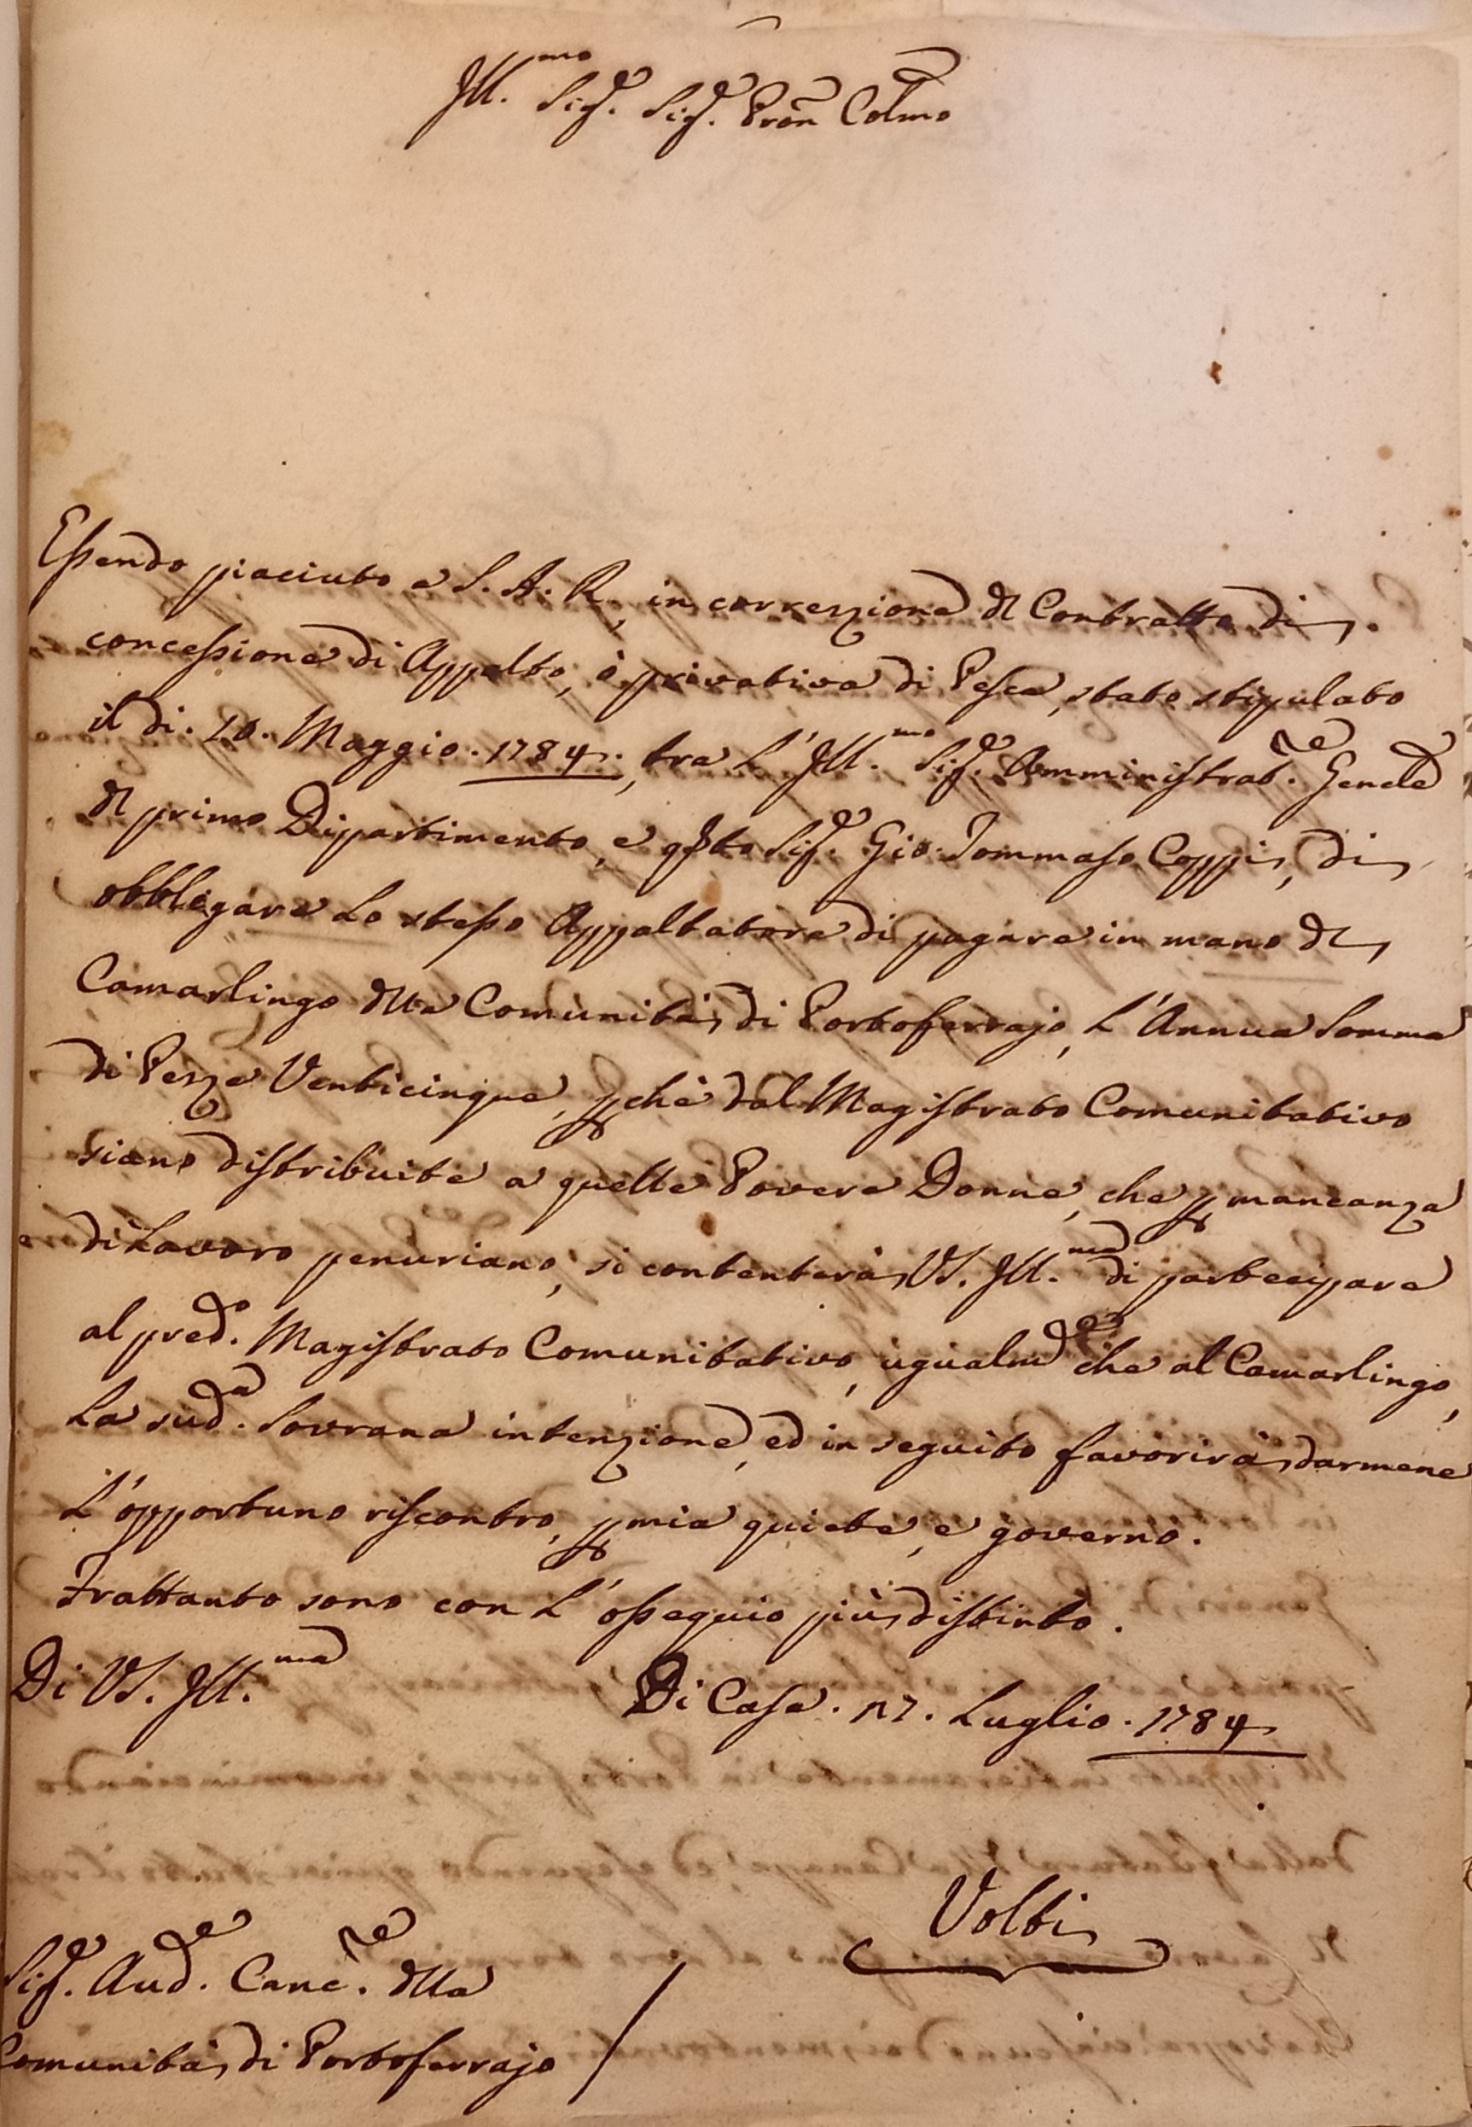 Ill.mo Sig.e Sig.e Pron Colmo
Essendo piaciuto a S. A. R, in correzzione dl Contratto di
concessione di Appalto, ò privativa di Pesca, stato stipulato
il di. 10. Maggio. 1784., tra L' Ill.mo Sig.e Amministrat.re Genele
dl primo Dipartimento, e qsto Sig.e Gio. Tommaso Coppi, di
obbligare Lo stesso Appaltatore di pagare in mano dl
Camarlingo dlla Comunità di Portoferrajo, L' Annua Somma
di Pezze Venticinque, pchè dal Magistrato Comunitativo
siano distribuite a quelle Povere Donne, che p mancanza
di Lavoro penuriano, si contenterà VS. Ill.ma di partecipare
al pred.o Magistrato Comunitativo, ugualm.e che al Camarlingo,
La sud.a Sovrana intenzione, ed in seguito favorirà darmene
L' opportuno riscontro, p mia quiete, e governo.
Frattanto sono con L' ossequio più distinto.
Di VS. Ill.ma
Di Casa. 17. Luglio. 1784
Volti
Sig.e Aud.e Canc.re dlla
Comunità di Portoferrajo